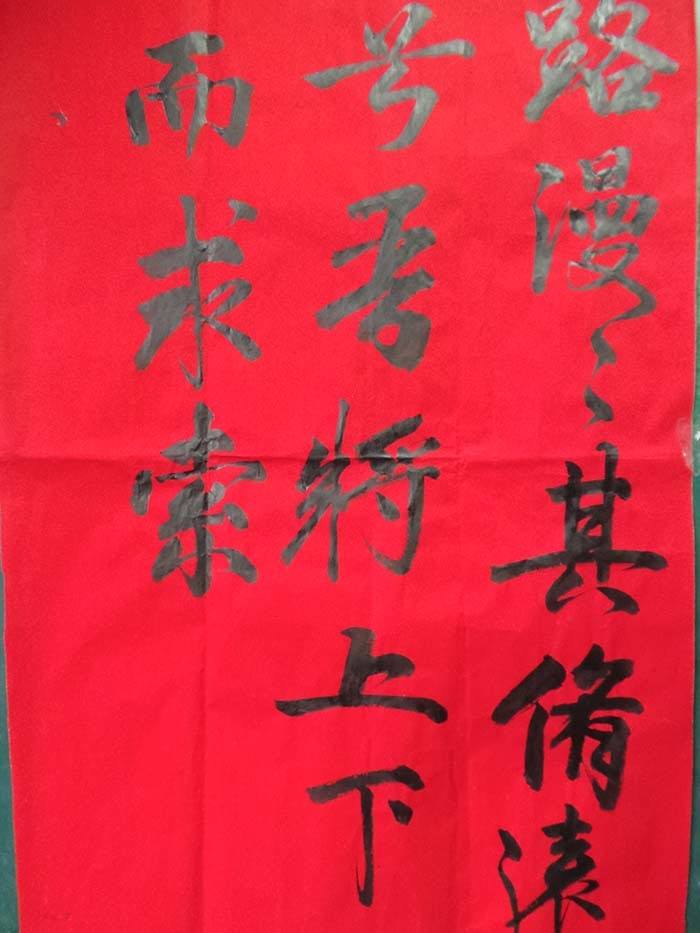 路漫々其脩遠
兮吾將上下
而求索